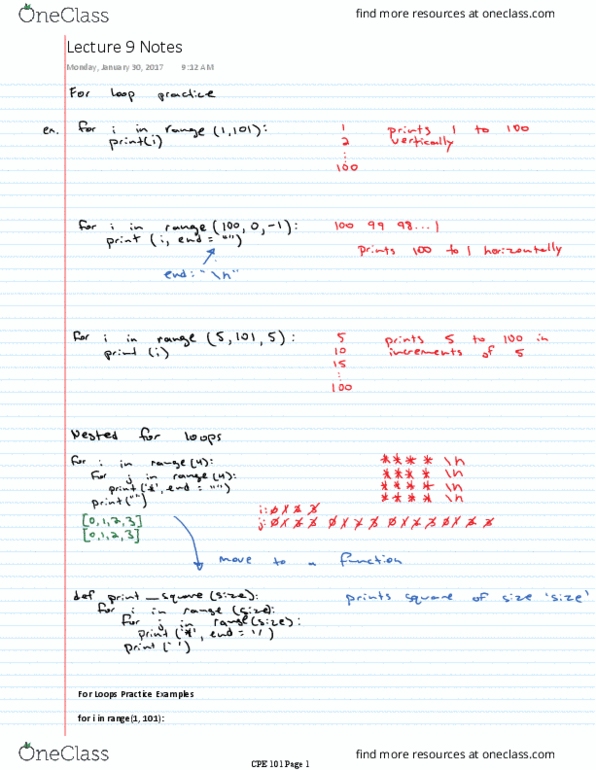 OneClass find more resources at oneclass.com
Lecture 9 Notes
Monday, January 30, 2017 9:12 AM
For loop practice
ex. for i in range (1,101): 1 prints 1 to 100
print(i) 2 vertically
⋮
100
for i in range (100, 0, -1): 100 99 98...1
print (i, end = "") prints 100 to 1 horizontally
end: "\n"
for i in range (5, 101, 5): 5 prints 5 to 100 in
print (i) 10 increments of 5
15
⋮
100
Nested for loops
for i in range (4): **** \n
for j in range (4): **** \n
print('*', end = "") **** \n
print("") **** \n
[0,1,2,3] i: 0 1 2 3
[0,1,2,3] j: 0 1 2 3 0 1 2 3 0 1 2 3 0 1 2 3
move to a function
def print_square (size): prints square of size 'size'
for i in range (size):
for j in range(size):
print ('*', end = '')
print ('')
For Loops Practice Examples
for i in range(1, 101):
OneClass find more resources at oneclass.com
CPE 101 Page 1